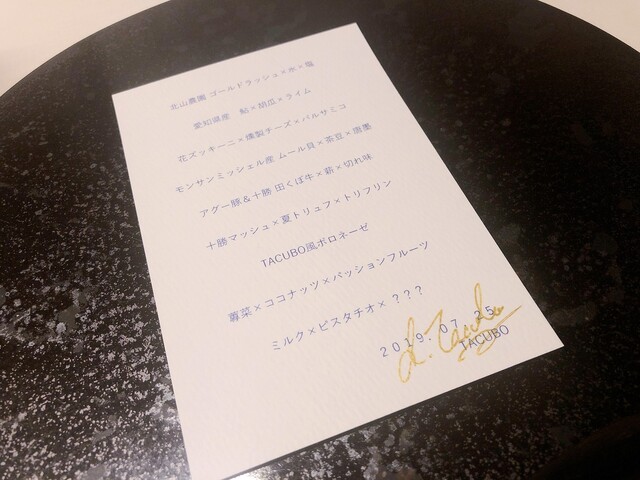 北山農園 ゴールドラッシュ×水×塩
愛知県産 鮎×胡瓜×ライム
花ズッキーニ×燻製チーズ×バルサミコ
モンサンミッシェル産 ムール貝×茶豆×唐墨
アグー豚&十勝 田くぼ牛×薪×切れ味
十勝マッシュ×夏トリュフ×トリフリン
TACUBO風ボロネーゼ
蓴菜×ココナッツ×パッションフルーツ
ミルク×ピスタチオ×???
2019.07.25
TACUBO